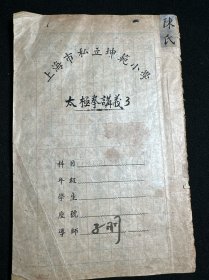 陳氏
上海市私立坤範小學
太極拳講義3
科目
年級
學生
座號
導師